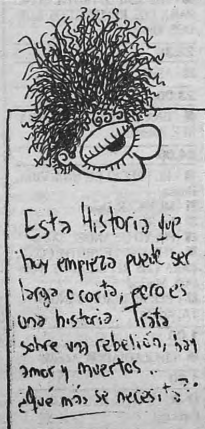 Esta Historia que
hoy empieza puede ser
larga o corta, pero es
una historia. Trata
sobre una rebelión, hay
amor y muertos..
¿Qué más se necesita?.